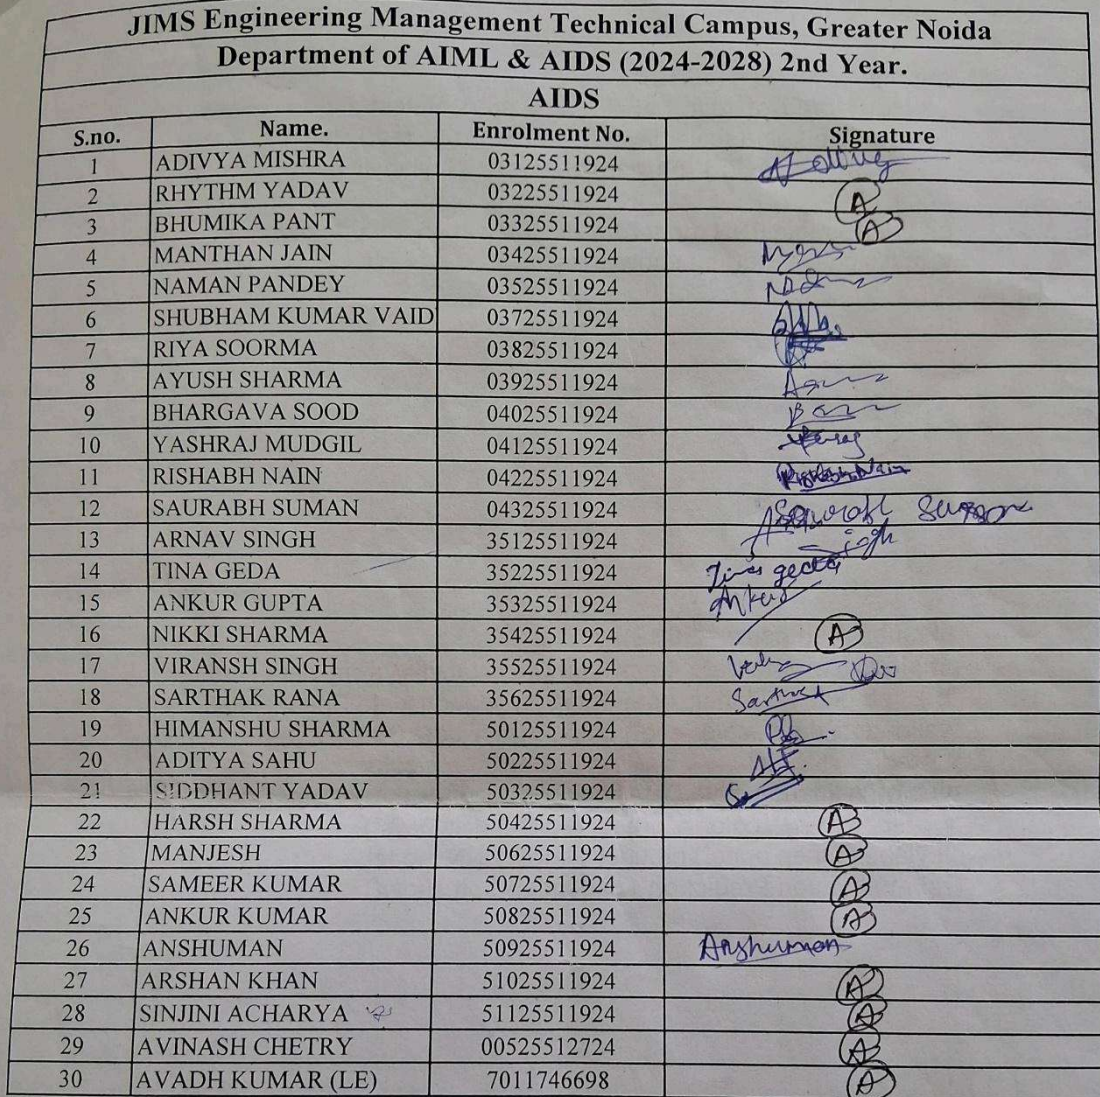 JIMS Engineering Management Technical Campus, Greater Noida
Department of AIML & AIDS (2024-2028) 2nd Year.
AIDS
S.no. Name. Enrolment No. Signature
1 ADIVYA MISHRA 03125511924
2 RHYTHM YADAV 03225511924 A
3 BHUMIKA PANT 03325511924 A
4 MANTHAN JAIN 03425511924
5 NAMAN PANDEY 03525511924
6 SHUBHAM KUMAR VAID 03725511924
7 RIYA SOORMA 03825511924
8 AYUSH SHARMA 03925511924
9 BHARGAVA SOOD 04025511924
10 YASHRAJ MUDGIL 04125511924
11 RISHABH NAIN 04225511924 Rishabh Nain
12 SAURABH SUMAN 04325511924 Saurabh Suman
13 ARNAV SINGH 35125511924
14 TINA GEDA 35225511924 Tina geda
15 ANKUR GUPTA 35325511924 Ankur
16 NIKKI SHARMA 35425511924 A
17 VIRANSH SINGH 35525511924
18 SARTHAK RANA 35625511924 Sarthak
19 HIMANSHU SHARMA 50125511924
20 ADITYA SAHU 50225511924
21 SIDDHANT YADAV 50325511924
22 HARSH SHARMA 50425511924 A
23 MANJESH 50625511924 A
24 SAMEER KUMAR 50725511924 A
25 ANKUR KUMAR 50825511924 A
26 ANSHUMAN 50925511924 Anshuman
27 ARSHAN KHAN 51025511924 A
28 SINJINI ACHARYA 51125511924 A
29 AVINASH CHETRY 00525512724 A
30 AVADH KUMAR (LE) 7011746698 A